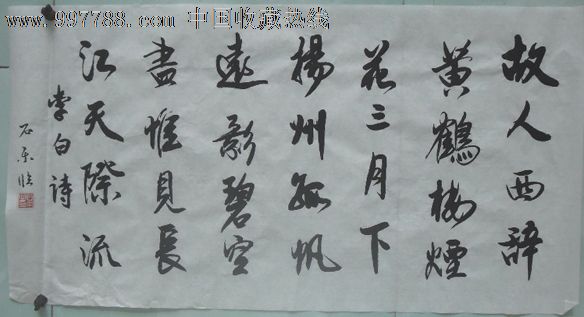 www.997788.com 中国收藏热线
故人西辭
黄鶴楼煙
花三月下
揚州孤帆
遠影碧空
盡惟見長
江天際流
李白詩